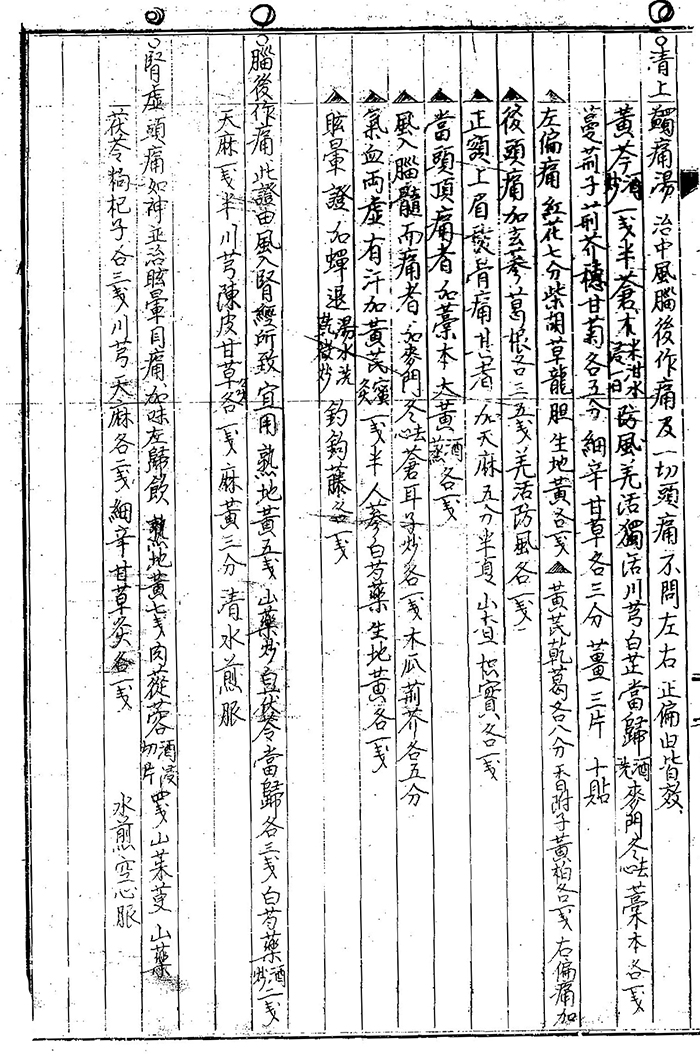 淸上蠲痛湯 治中風腦後作痛及一切頭痛不問左右正偏旧皆效
黃芩酒炒一戔半蒼朮米泔水浸一日防風羌活獨活川芎白芷當歸酒洗麥門冬去心藁本各一戔
蔓荊子荊芥穗甘菊各五分細辛甘草各三分薑三片 十貼
左偏痛紅花七分柴胡草龍胆生地黃各一戔▲黃芪乾葛各八分香附子黃柏各一戔右偏痛加
▲後頭痛加玄蔘葛根各三五戔羌活防風各一戔
▲正額上眉發骨痛甚者加天麻五分半夏山査枳實各一戔
▲當頭頂痛者加藁本大黃酒蒸各一戔
▲風入腦髓而痛者加麥門冬去心蒼耳子炒各一戔木瓜荊芥各五分
▲氣血両虛有汗加黃芪蜜灸一戔半人蔘白芍藥生地黃各一戔
▲眩暈證加蟬退湯水洗乾微炒釣鉤藤各一戔
腦後作痛此證由風入腎經所致宜用熟地黃五戔山藥炒白茯苓當歸各三戔白芍藥酒炒二戔
天麻一戔半川芎陳皮甘草各一戔麻黃三分淸水煎服
腎虛頭痛如神並治眩暈目痛加味左歸飮熟地黃七戔肉蓯蓉酒浸切片四戔山茱萸山藥
茯苓枸杞子各三戔川芎天麻各二戔細辛甘草灸各一戔 水煎空心服